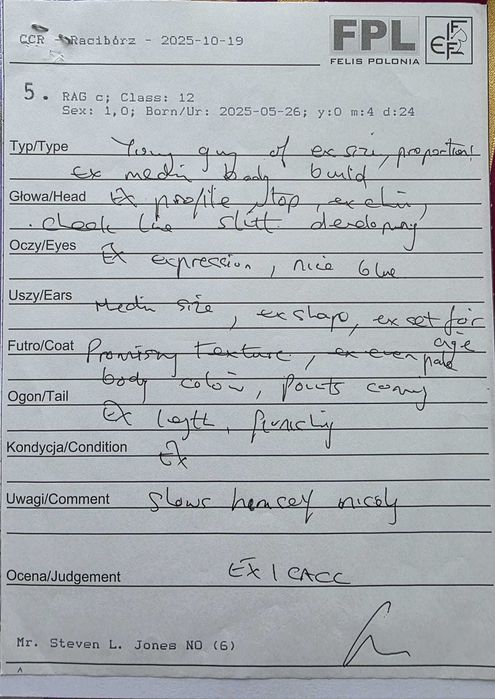 CCR - Racibórz - 2025-10-19
FPL
FELIS POLONIA
FIFe
5. RAG c; Class: 12
Sex: 1,0; Born/Ur: 2025-05-26; y:0 m:4 d:24
Typ/Type Young guy of ex size, proportion!
Ex medium body build
Głowa/Head Ex profile stop, ex chin,
cheek line still developing
Oczy/Eyes Ex expression, nice blue
Uszy/Ears Medium size, ex shape, ex set for
age
Futro/Coat Promising texture, ex even pale
body colour, points coming
Ogon/Tail Ex length, furnishing
Kondycja/Condition Ex
Uwagi/Comment Shows himself nicely
Ocena/Judgement EX 1 CACC
Mr. Steven L. Jones NO (6)